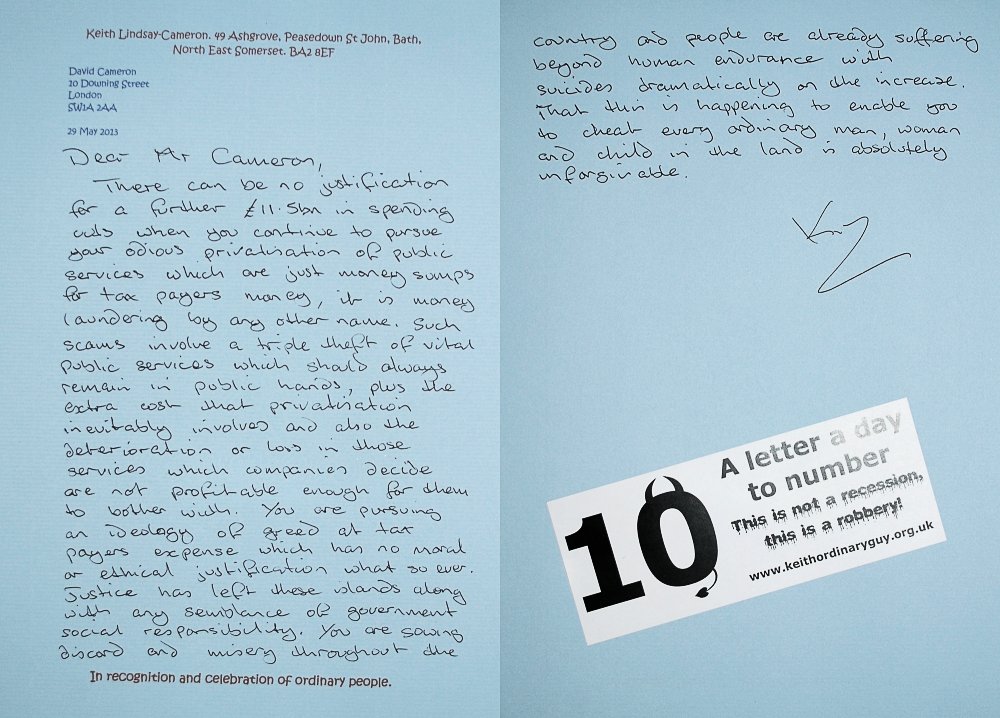 Keith Lindsay-Cameron. 49 Ashgrove, Peasedown St John, Bath,
North East Somerset. BA2 8EF
David Cameron
10 Downing Street
London
SW1A 2AA
29 May 2013
Dear Mr Cameron,
There can be no justification
for a further £11.5bn in spending
cuts when you continue to pursue
your odious privatisation of public
services which are just money sumps
for tax payers money, it is money
laundering by any other name. Such
scams involve a triple theft of vital
public services which should always
remain in public hands, plus the
extra cost that privatisation
inevitably involves and also the
deterioration or loss in those
services which companies decide
are not profitable enough for them
to bother with. You are pursuing
an ideology of greed at tax
payers expense which has no moral
or ethical justification what so ever.
Justice has left these islands along
with any semblance of government
social responsibility. You are sowing
discord and misery throughout the
In recognition and celebration of ordinary people.
country and people are already suffering
beyond human endurance with
suicides dramatically on the increase.
That this is happening to enable you
to cheat every ordinary man, woman
and child in the land is absolutely
unforgivable.
A letter a day
to number
10
This is not a recession,
this is a robbery!
www.keithordinaryguy.org.uk